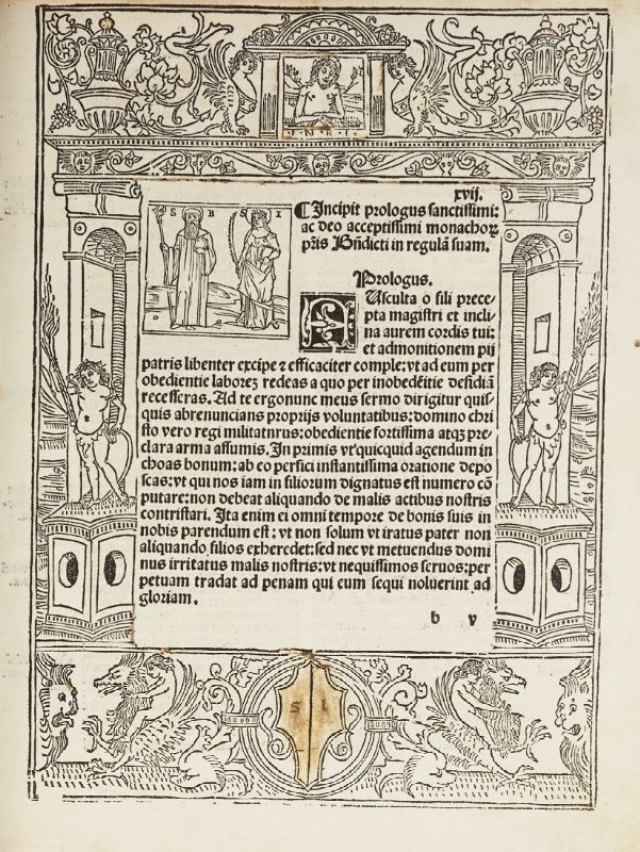 I N R I
xvij.
S B S I
¶ Incipit prologus sanctissimi:
ac deo acceptissimi monachoꝝ
pr̄is Bn̄dicti in regulā suam.
Prologus.
AUsculta o fili prece⸗
pta magistri et incli
na aurem cordis tui:
et admonitionem pij
patris libenter excipe ⁊ efficaciter comple: vt ad eum per
obedientie laboreꝫ redeas a quo per inobedētie desidiā
recesseras. Ad te ergo nunc meus sermo dirigitur quis⸗
quis abrenuncians proprijs voluntatibus: domino chri
sto vero regi militaturus: obedientie fortissima atqꝫ pre⸗
clara arma assumis. In primis vt quicquid agendum in
choas bonum: ab eo perfici instantissima oratione depo
scas: vt qui nos iam in filiorum dignatus est numero cō
putare: non debeat aliquando de malis actibus nostris
contristari. Ita enim ei omni tempore de bonis suis in
nobis parendum est: vt non solum vt iratus pater non
aliquando filios exheredet: sed nec vt metuendus domi
nus irritatus malis nostris: vt nequissimos seruos: per
petuam tradat ad penam qui eum sequi noluerint ad
gloriam.
b v
S I